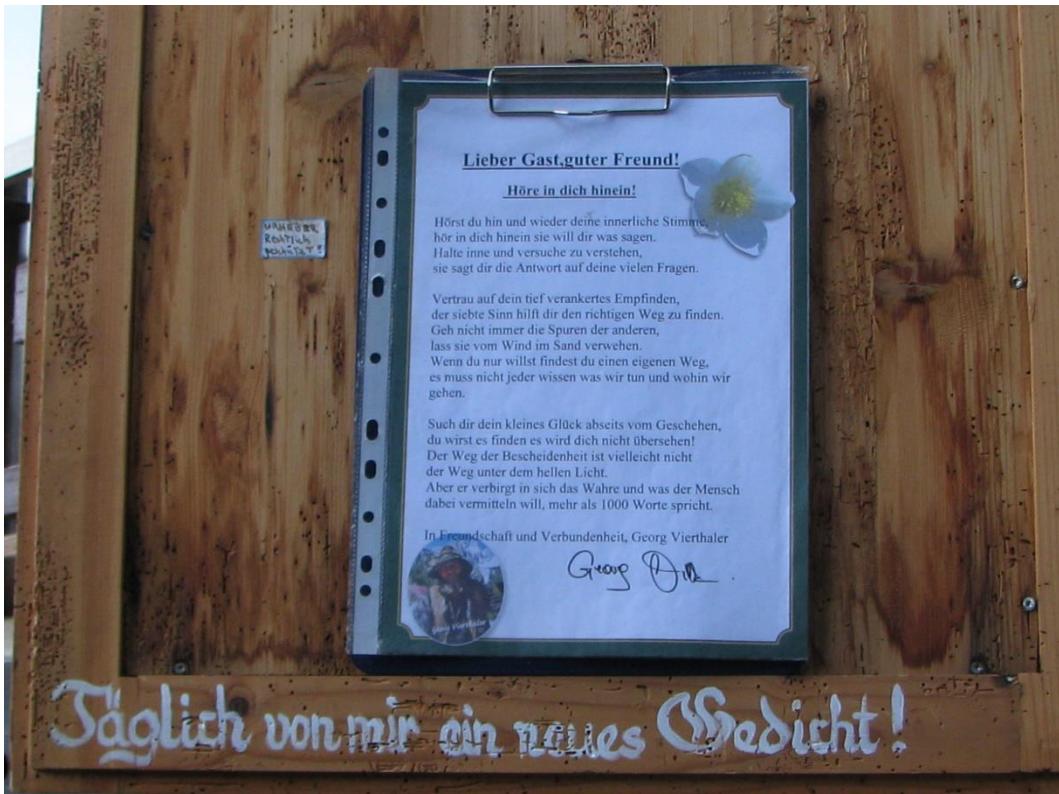 Lieber Gast,guter Freund!
Höre in dich hinein!
Hörst du hin und wieder deine innerliche Stimme,
hör in dich hinein sie will dir was sagen.
Halte inne und versuche zu verstehen,
sie sagt dir die Antwort auf deine vielen Fragen.
Vertrau auf dein tief verankertes Empfinden,
der siebte Sinn hilft dir den richtigen Weg zu finden.
Geh nicht immer die Spuren der anderen,
lass sie vom Wind im Sand verwehen.
Wenn du nur willst findest du einen eigenen Weg,
es muss nicht jeder wissen was wir tun und wohin wir
gehen.
Such dir dein kleines Glück abseits vom Geschehen,
du wirst es finden es wird dich nicht übersehen!
Der Weg der Bescheidenheit ist vielleicht nicht
der Weg unter dem hellen Licht.
Aber er verbirgt in sich das Wahre und was der Mensch
dabei vermitteln will, mehr als 1000 Worte spricht.
In Freundschaft und Verbundenheit, Georg Vierthaler
Georg
Georg Vierthaler
URHEBER
Rechtlich
geschützt!
Täglich von mir ein neues Gedicht!